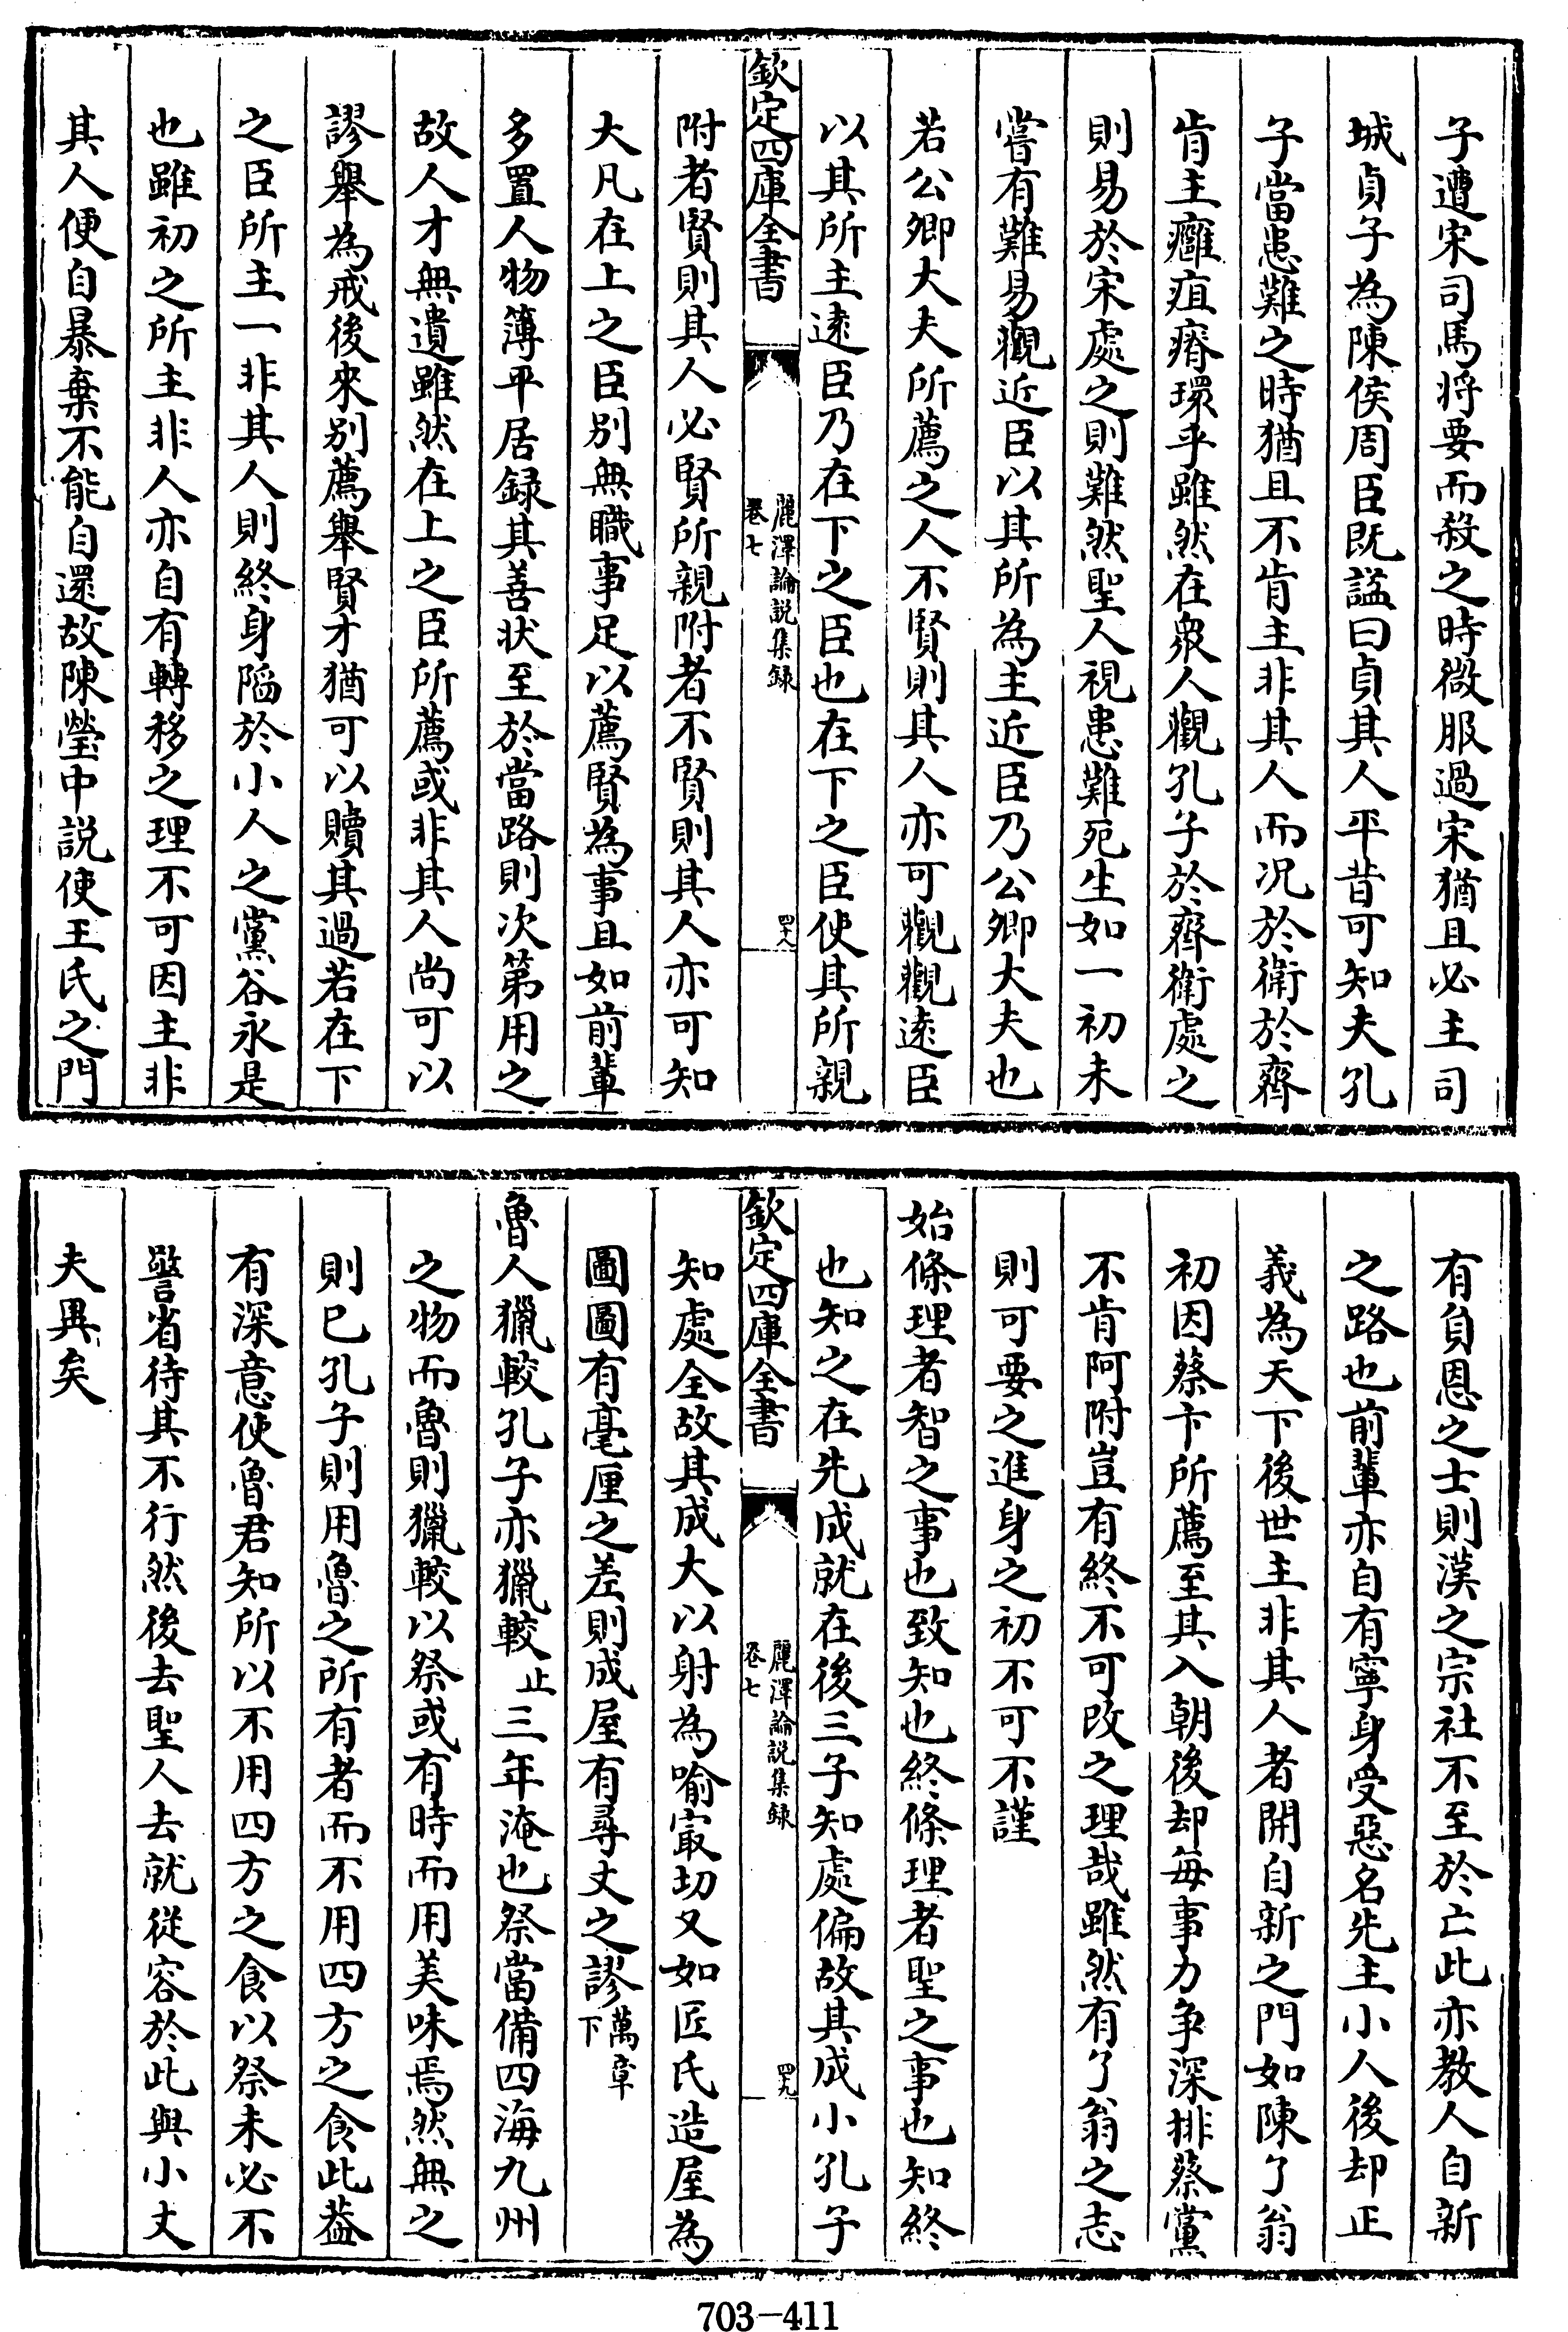 子遭宋司馬将要而殺之時微服過宋猶且必主司
城貞子為陳侯周臣既諡曰貞其人平昔可知夫孔
子當患難之時猶且不肯主非其人而况於衛於齊
肯主癰疽瘠環乎雖然在衆人觀孔子於齊衛處之
則易於宋處之則難然聖人視患難死生如一初未
嘗有難易觀近臣以其所為主近臣乃公卿大夫也
若公卿大夫所薦之人不賢則其人亦可觀觀逺臣
以其所主逺臣乃在下之臣也在下之臣使其所親
欽定四庫全書
麗澤論説集録
卷七
四十八
附者賢則其人必賢所親附者不賢則其人亦可知
大凡在上之臣别無職事足以薦賢為事且如前輩
多置人物簿平居録其善状至於當路則次第用之
故人才無遺雖然在上之臣所薦或非其人尚可以
謬舉為戒後來别薦舉賢才猶可以贖其過若在下
之臣所主一非其人則終身陷於小人之黨谷永是
也雖初之所主非人亦自有轉移之理不可因主非
其人便自暴棄不能自還故陳瑩中説使王氏之門
有負恩之士則漢之宗社不至於亡此亦教人自新
之路也前輩亦自有寧身受惡名先主小人後却正
義為天下後世主非其人者開自新之門如陳了翁
初因蔡卞所薦至其入朝後却每事力争深排蔡黨
不肯阿附豈有終不可改之理哉雖然有了翁之志
則可要之進身之初不可不謹
始條理者智之事也致知也終條理者聖之事也知終
也知之在先成就在後三子知處偏故其成小孔子
欽定四庫全書
麗澤論説集録
卷七
四十九
知處全故其成大以射為喻㝡切又如匠氏造屋為
圖圖有毫厘之差則成屋有尋丈之謬萬章下
魯人獵較孔子亦獵較止三年淹也祭當備四海九州
之物而魯則獵較以祭或有時而用美味焉然無之
則已孔子則用魯之所有者而不用四方之食此葢
有深意使魯君知所以不用四方之食以祭未必不
警省待其不行然後去聖人去就從容於此與小丈
夫異矣
703-411